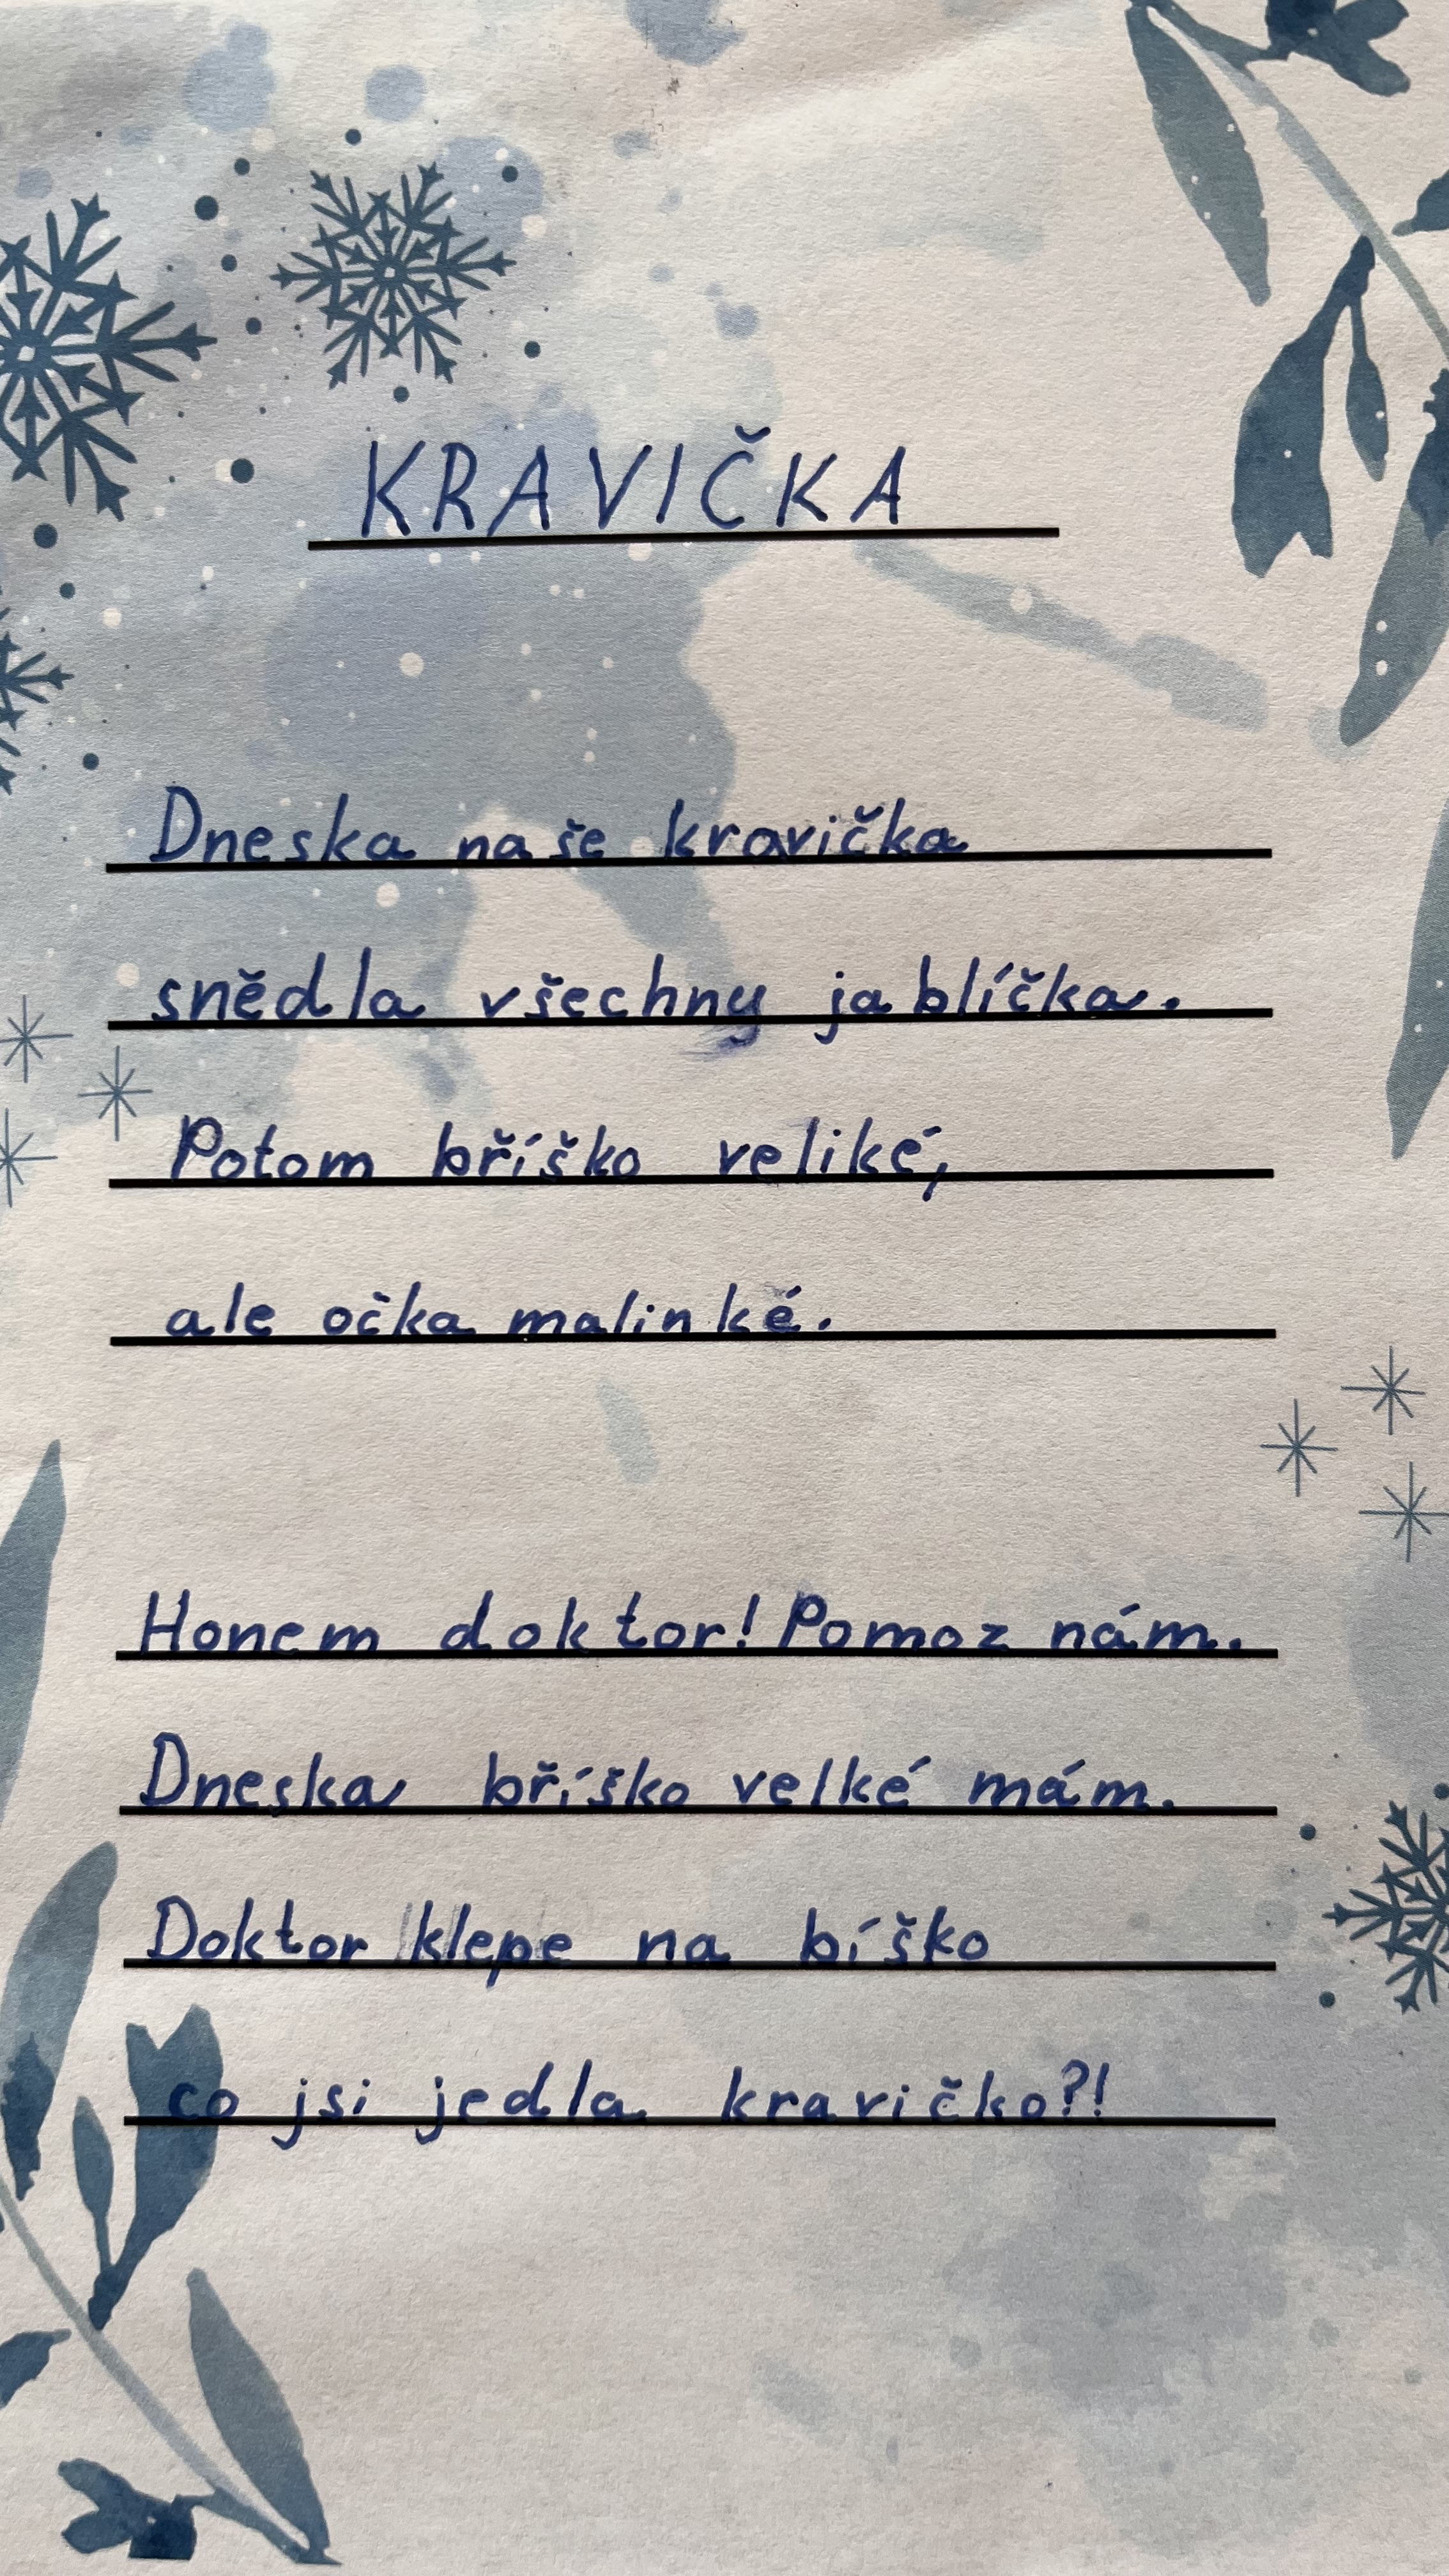 KRAVIČKA
Dneska naše kravička
snědla všechny jablíčka.
Potom bříško veliké,
ale očka malinké.
Honem doktor! Pomoz nám.
Dneska bříško velké mám.
Doktor klepe na bíško
co jsi jedla kravičko?!